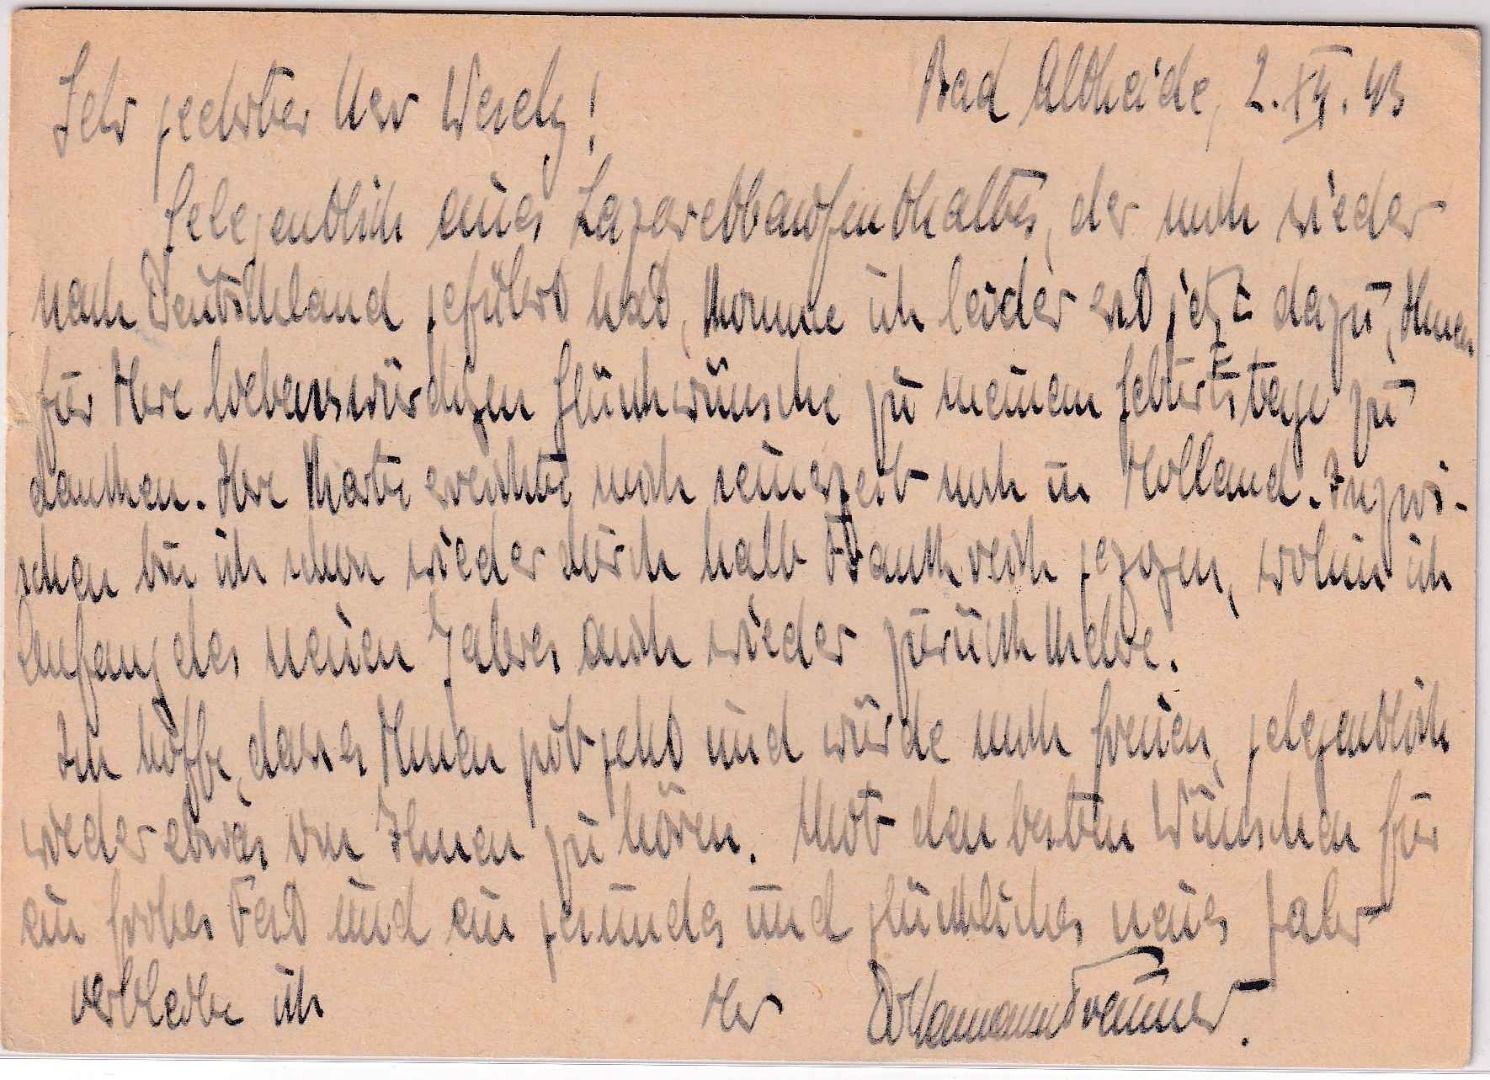 Bad Altheide, 2. XII. 43
Sehr geehrter Herr Wesely!
Gelegentlich eines Lazarettaufenthaltes, der mich wieder
nach Deutschland geführt hat, komme ich leider erst jetzt dazu, Ihnen
für Ihre liebenswürdigen Glückwünsche zu meinem Geburtstage zu
danken. Ihre Karte erreichte mich seinerzeit noch in Holland. Inzwi-
schen bin ich schon wieder durch halb Frankreich gezogen, wohin ich
Anfang des neuen Jahres auch wieder zurückkehre.
Ich hoffe, dass es Ihnen gut geht und würde mich freuen, gelegentlich
wieder etwas von Ihnen zu hören. Mit den besten Wünschen für
ein frohes Fest und ein gesundes und glückliches neues Jahr
verbleibe ich Ihr